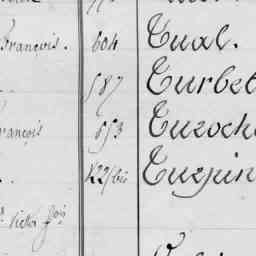 François. 604 Tual.
587 Turbet
rançois 653 Turoch
122/bis Turpin
Victor fçois